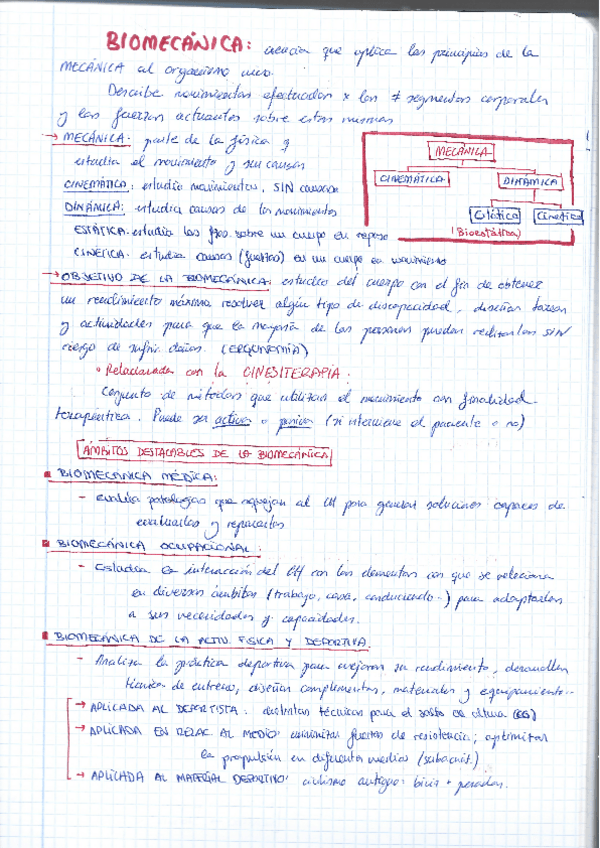 BIOMECÁNICA: ciencia que aplica los principios de la
MECÁNICA al organismo vivo.
Describe movimientos efectuados x los ≠ segmentos corporales
y las fuerzas actuantes sobre estos mismos
→ MECÁNICA: parte de la física q
estudia el movimiento y sus causas
CINEMÁTICA: estudia movimientos, SIN causas
DINÁMICA: estudia causas de los movimientos
ESTÁTICA: estudia las fzas. sobre un cuerpo en reposo
CINÉTICA: estudia causas (fuerzas) en un cuerpo en movimiento
MECÁNICA
CINEMÁTICA DINÁMICA
Estática Cinética
(Bioestática)
→ OBJETIVO DE LA BIOMECÁNICA: estudio del cuerpo con el fin de obtener
un rendimiento máximo, resolver algún tipo de discapacidad, diseñar tareas
y actividades para que la mayoría de las personas puedan realizarlas SIN
riesgo de sufrir daños. (ERGONOMÍA)
• Relacionada con la CINESITERAPIA:
Conjunto de métodos que utilizan el movimiento con finalidad
terapéutica. Puede ser activa o pasiva (si interviene el paciente o no)
ÁMBITOS DESTACABLES DE LA BIOMECÁNICA
BIOMECÁNICA MÉDICA:
- evalúa patologías que aquejan al CH para generar soluciones capaces de
evaluarlos y repararlos
BIOMECÁNICA OCUPACIONAL:
- Estudia la interacción del CH con los elementos con que se relaciona
en diversos ámbitos (trabajo, casa, conduciendo..) para adaptarlos
a sus necesidades y capacidades.
BIOMECÁNICA DE LA ACTIV. FÍSICA Y DEPORTIVA.
- Analiza la práctica deportiva para mejorar su rendimiento, desarrollar
técnica de entreno, diseñar complementos, materiales y equipamiento..
→ APLICADA AL DEPORTISTA: distintas técnicas para el salto de altura
→ APLICADA EN RELAC. AL MEDIO: minimizar fuerzas de resistencia; optimizar
la propulsión en diferentes medios (subacuát.)
→ APLICADA AL MATERIAL DEPORTIVO: ciclismo antiguo: bicis + pesadas.